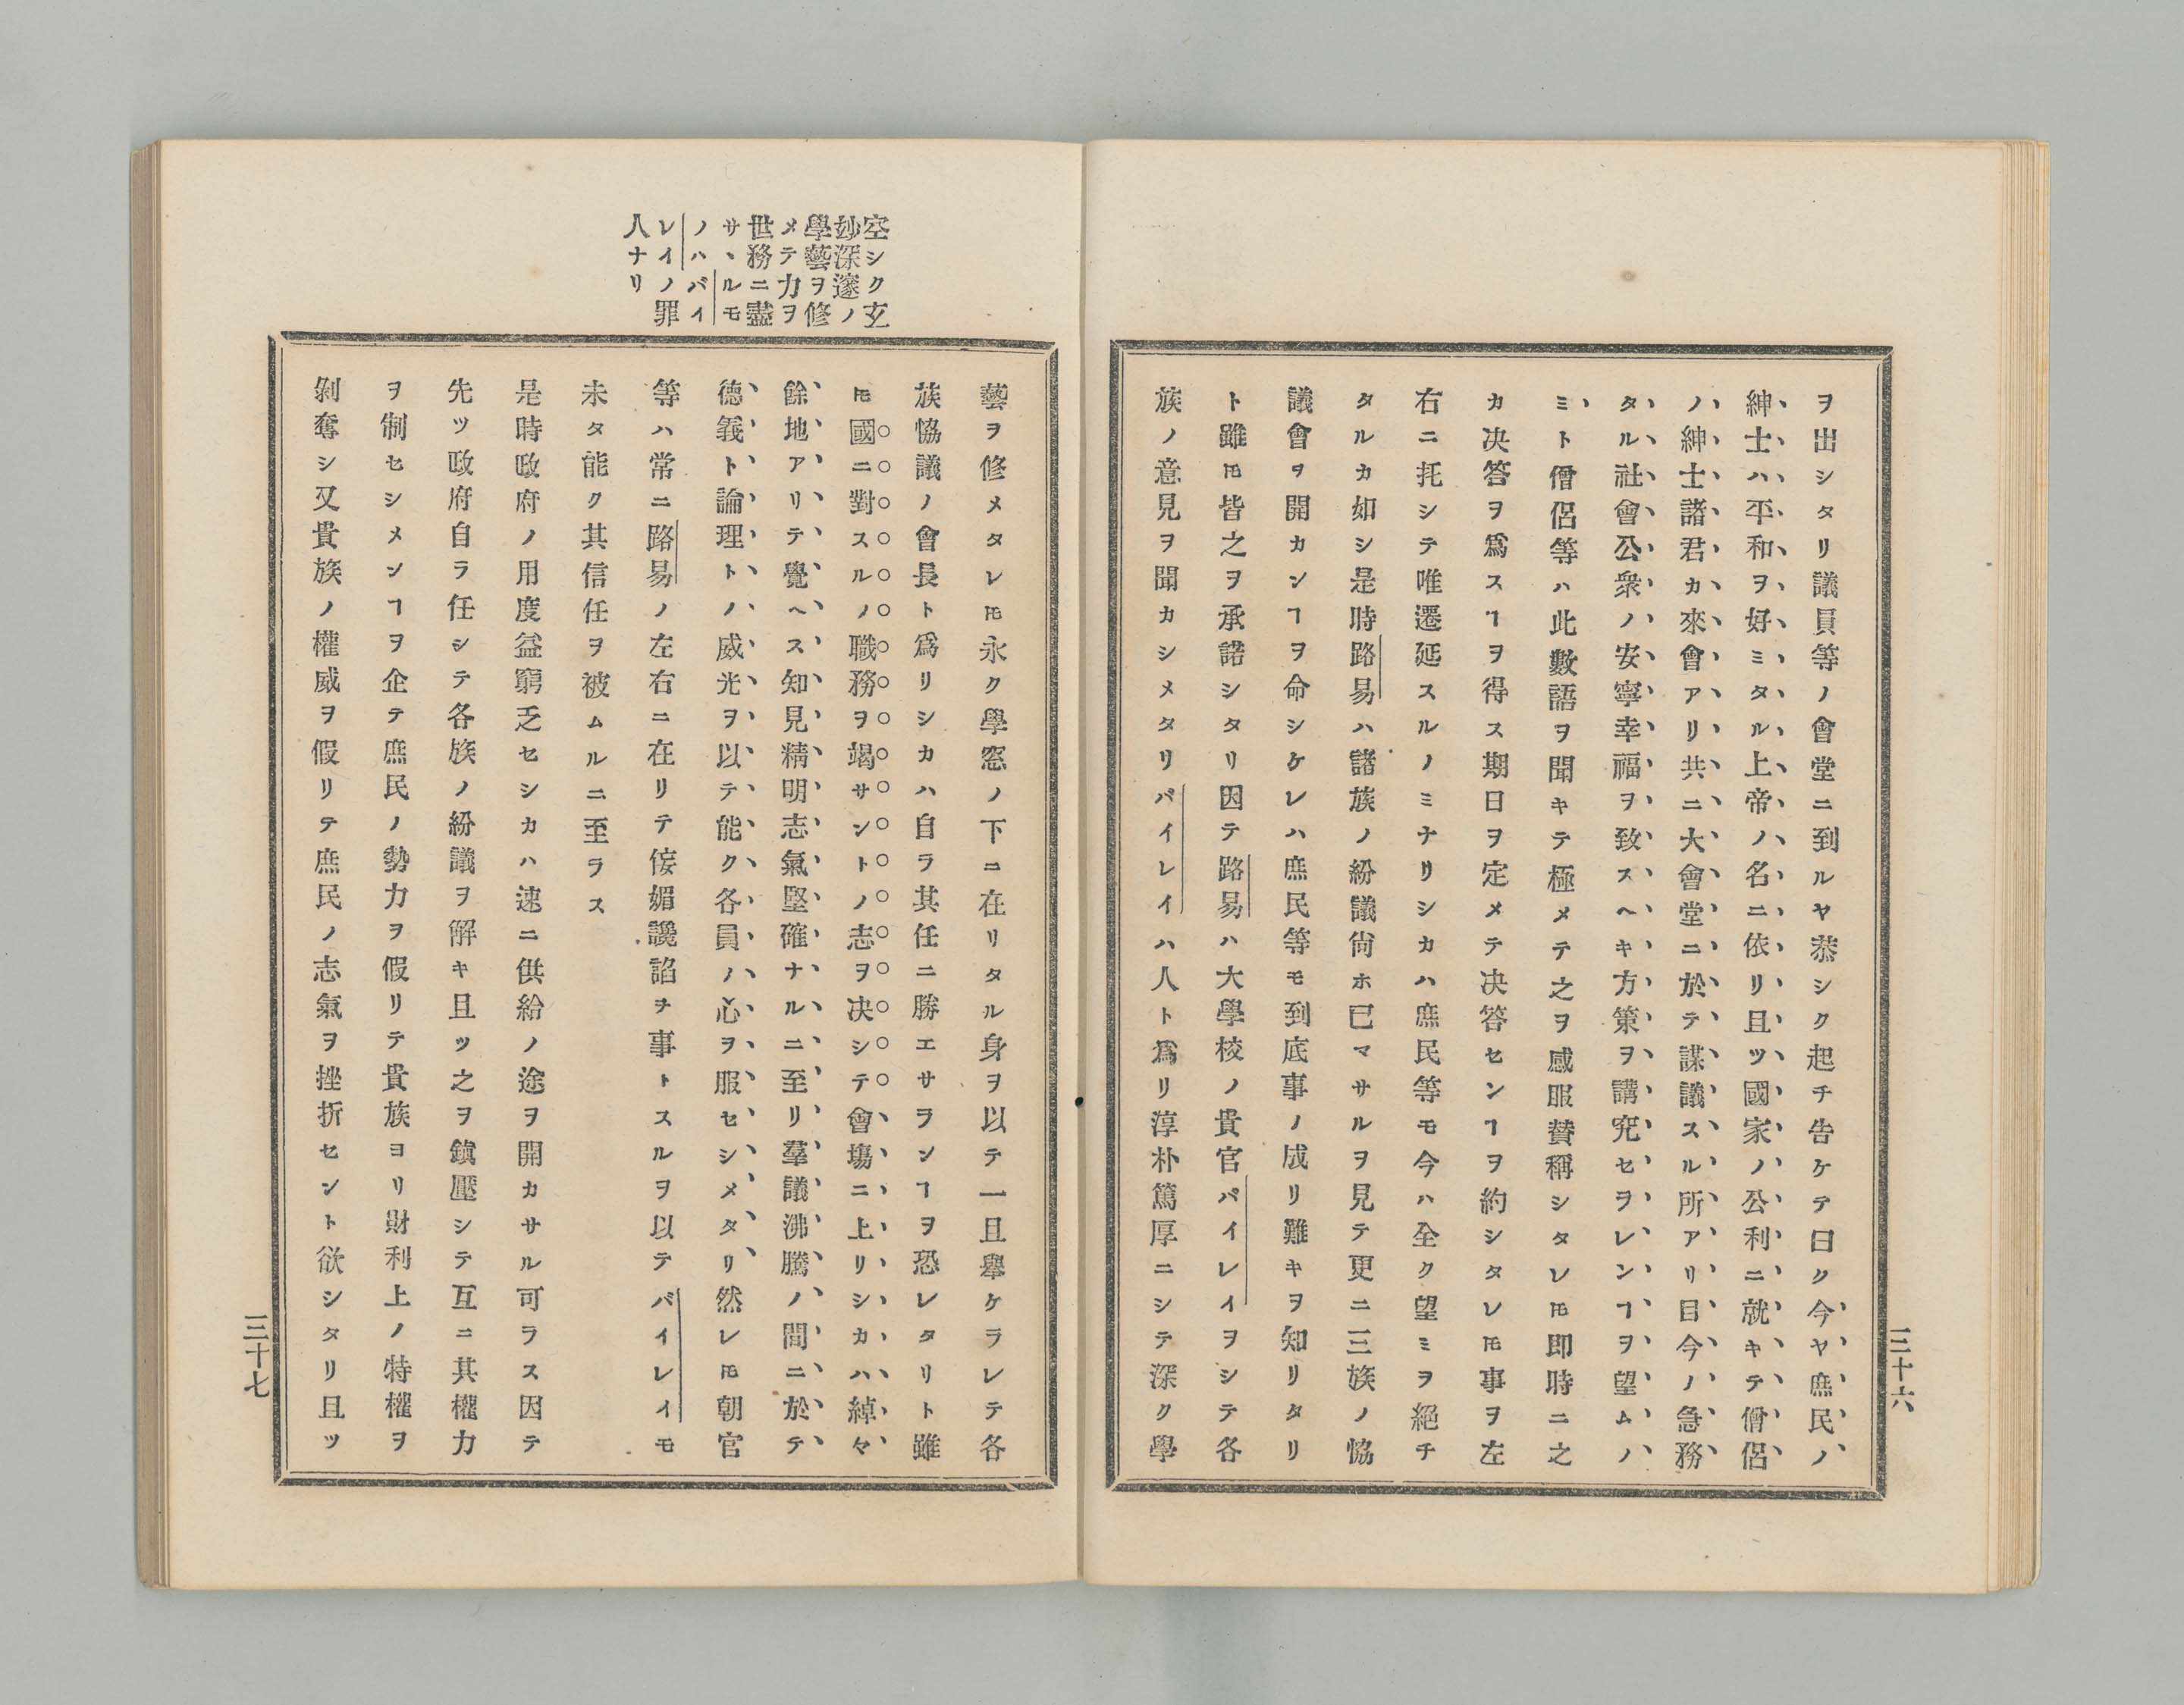 ヲ出シタリ議員等ノ會堂ニ到ルヤ恭シク起チ告ケテ曰ク今ヤ庶民ノ
紳士ハ平和ヲ好ミタル上帝ノ名ニ依リ且ツ國家ノ公利ニ就キテ僧侶
ノ紳士諸君カ來會アリ共ニ大會堂ニ於テ謀議スル所アリ目今ノ急務
タル社會公衆ノ安寧幸福ヲ致スヘキ方策ヲ講究セヲレンヿヲ望ムノ
ミト僧侶等ハ此數語ヲ聞キテ極メテ之ヲ感服賛稱シタレ𪜈即時ニ之
カ决答ヲ爲スヿヲ得ス期日ヲ定メテ决答センヿヲ約シタレ𪜈事ヲ左
右ニ托シテ唯遷延スルノミナリシカハ庶民等モ今ハ全ク望ミヲ絕チ
タルカ如シ是時路易ハ諸族ノ紛議尙ホ已マサルヲ見テ更ニ三族ノ恊
議會ヲ開カンヿヲ命シケレハ庶民等モ到底事ノ成リ難キヲ知リタリ
ト雖𪜈皆之ヲ承諾シタリ因テ路易ハ大學校ノ貴官パイレイヲシテ各
族ノ意見ヲ聞カシメタリパイレイハ人ト爲リ淳朴篤厚ニシテ深ク學
三十六
空シク玄
妙深邃ノ
學藝ヲ修
メテ力ヲ
世務ニ盡
サヽルモ
ノハバイ
レイノ罪
人ナリ
藝ヲ修メタレ𪜈永ク學窓ノ下ニ在リタル身ヲ以テ一旦擧ケラレテ各
族恊議ノ會長ト爲リシカハ自ラ其任ニ勝エサランヿヲ恐レタリト雖
𪜈國ニ對スルノ職務ヲ竭サントノ志ヲ决シテ會塲ニ上リシカハ綽々
餘地アリテ覺ヘス知見精明志氣堅確ナルニ至リ羣議沸騰ノ間ニ於テ
德義ト論理トノ威光ヲ以テ能ク各員ノ心ヲ服セシメタリ然レ𪜈朝官
等ハ常ニ路易ノ左右ニ在リテ侫媚讒諂ヲ事トスルヲ以テバイレイモ
未タ能ク其信任ヲ被ムルニ至ラス
是時政府ノ用度益窮乏セシカハ速ニ供給ノ途ヲ開カサル可ラス因テ
先ツ政府自ラ任シテ各族ノ紛議ヲ解キ且ツ之ヲ鎭壓シテ互ニ其權力
ヲ制セシメンヿヲ企テ庶民ノ勢力ヲ假リテ貴族ヨリ財利上ノ特權ヲ
剝奪シ又貴族ノ權威ヲ假リテ庶民ノ志氣ヲ挫折セント欲シタリ且ツ
三十七